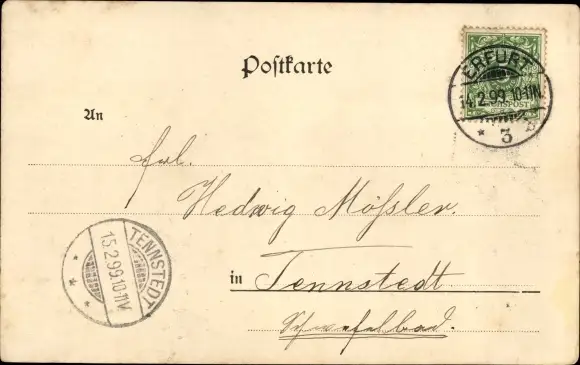 Postkarte
ERFURT
14.2.99.10-11N.
* 3 b
An
Frl.
Hedwig Mößler.
in Tennstedt
Schwefelbad.
TENNSTEDT
15.2.99.10-11V.